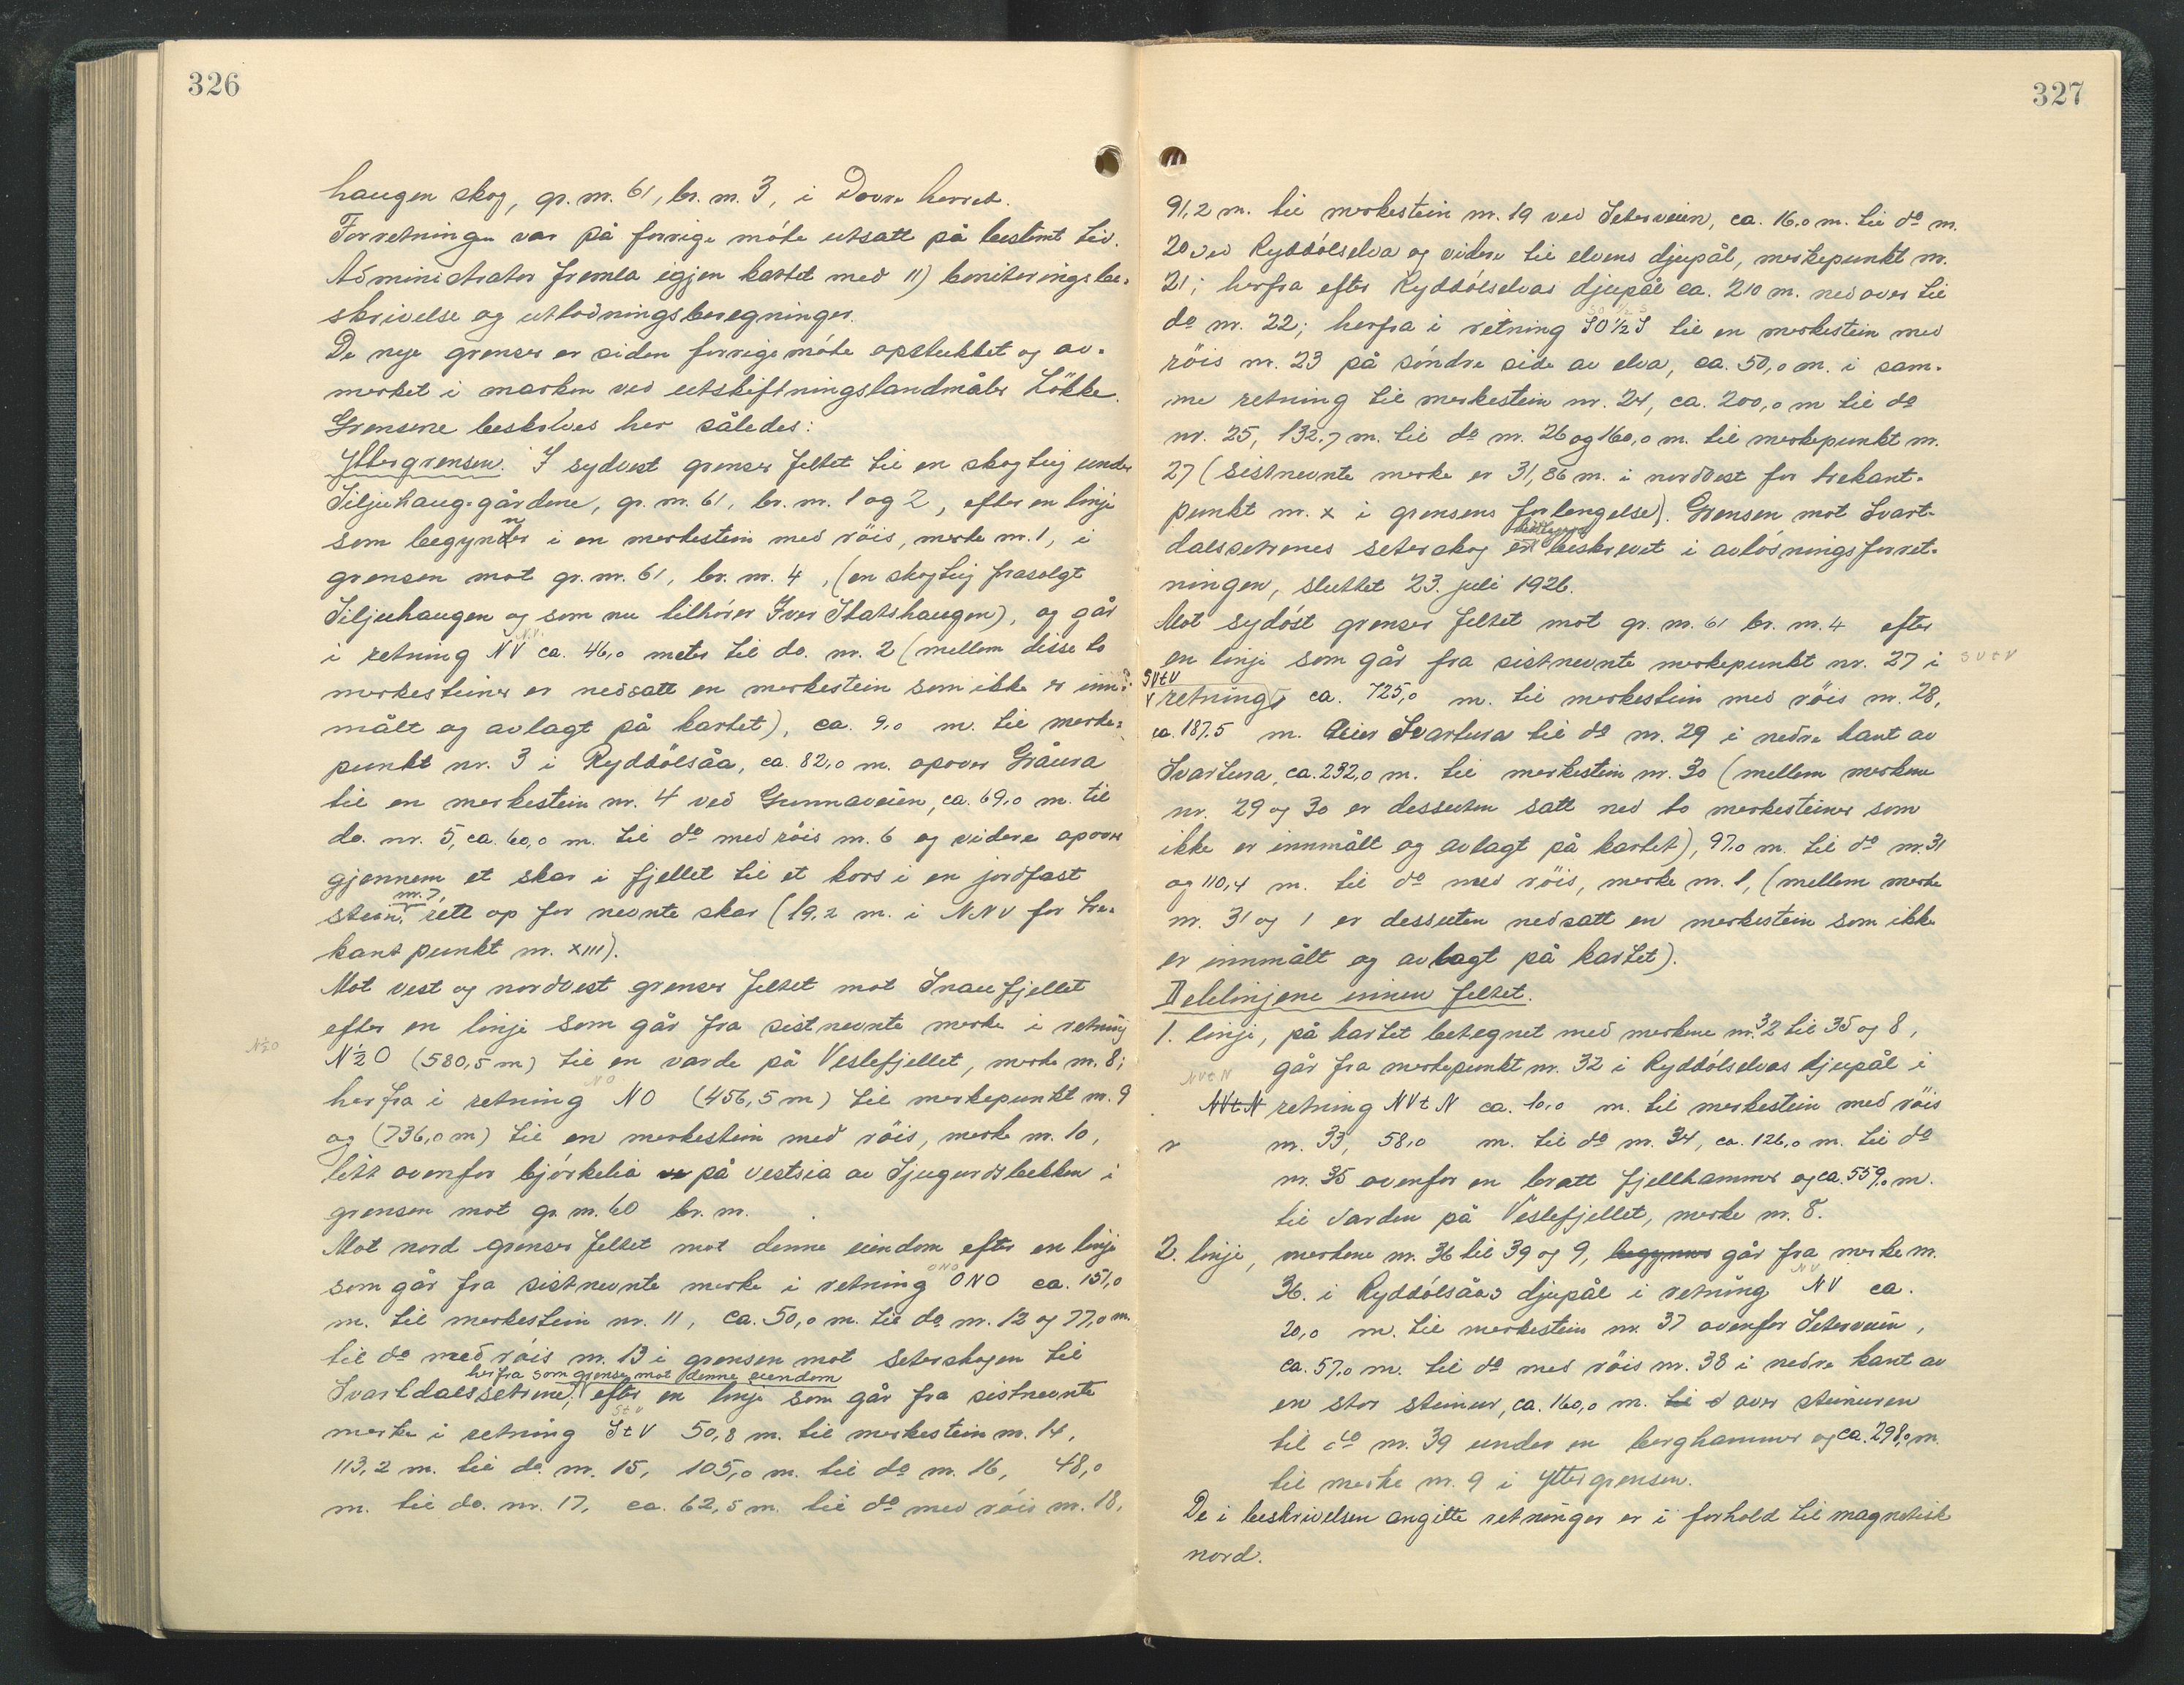 326
haugen skog, gr. nr. 61, br. nr. 3, i Dovre herred.
Forretningen var på forrige møte utsatt på bestemt tid.
Administrator fremla igjen kartet med 11) boniteringsbe-
skrivelse og utlodningsberegninger.
De nye grenser er siden forrige møte opstukket og av-
merket i marken ved utskiftningslandmåler Løkke.
Grensene beskrives her således:
Yttergrensen. I sydvest grenser feltet til en skogteig under
Siljuhaug-gårdene, gr. nr. 61, br. nr. 1 og 2, efter en linje
som begynner i en merkestein med röis, merke nr. 1, i
grensen mot gr. nr. 61, br. nr. 4, (en skogteig frasolgt
Siljuhaugen og som nu tilhører Iver Statshaugen), og går
i retning NV ca. 46,0 meter til do. nr. 2 (mellem disse to
merkesteiner er nedsatt en merkestein som ikke er inn-
målt og avlagt på kartet), ca. 9,0 m. til merke-
punkt nr. 3 i Ryddölsåa, ca. 82,0 m. opover Gråura
til en merkestein nr. 4 ved Gunnaveien, ca. 69,0 m. til
do. nr. 5, ca. 60,0 m. til do med röis nr. 6 og videre opover
gjennem et skar i fjellet til et kors i en jordfast
stein, nr. 7, rett op for nevnte skar (19,2 m. i NNV for tre-
kantpunkt nr. XIII).
Mot vest og nordvest grenser feltet mot Snaufjellet
efter en linje som går fra sistnevnte merke i retning
N½O N½O (580,5 m) til en varde på Veslefjellet, merke nr. 8;
herfra i retning NO (456,5 m) til merkepunkt nr. 9
og (736,0 m) til en merkestein med röis, merke nr. 10,
litt ovenfor bjørkelia på vestsia av Sjugurdsbekken i
grensen mot gr. nr. 60 br. nr.
Mot nord grenser feltet mot denne eiendom efter en linje
som går fra sistnevnte merke i retning ONO ca. 151,0
m. til merkestein nr. 11, ca. 50,0 m. til do nr. 12 og 77,0 m.
til do med röis nr. 13 i grensen mot seterskogen til
herfra som grense mot denne eiendom
Svartdalssetrene, efter en linje som går fra sistnevnte
merke i retning StV 50,8 m. til merkestein nr. 14,
113,2 m. til do. nr. 15, 105,0 m. til do nr. 16, 48,0
m. til do. nr. 17, ca. 62,5 m. til do med röis nr. 18,
327
91,2 m. til merkestein nr. 19 ved Seterveien, ca. 16,0 m. til do nr.
20 ved Ryddölselva og videre til elvens djupål, merkepunkt nr.
21; herfra efter Ryddölselvas djupål ca. 210 m. nedover til
do nr. 22; herfra i retning SO½S til en merkestein med
röis nr. 23 på søndre side av elva, ca. 50,0 m. i sam-
me retning til merkestein nr. 24, ca. 200,0 m til do
nr. 25, 132,7 m. til do nr. 26 og 160,0 m. til merkepunkt nr.
27 (sistnevnte merke er 31,86 m. i nordvest for trekant-
punkt nr. X i grensens forlengelse). Grensen mot Svart-
dalssetrenes seterskog er beskrevet i avløsningsforret-
ningen, sluttet 23. juli 1926.
Mot sydøst grenser feltet mot gr. nr. 61 br. nr. 4 efter
en linje som går fra sistnevnte merkepunkt nr. 27 i SVtV
SVtV
retning ca. 725,0 m. til merkestein med röis nr. 28,
ca. 187,5 m. over Svartura til do nr. 29 i nedre kant av
Svartura, ca. 232,0 m. til merkestein nr. 30 (mellem merkene
nr. 29 og 30 er dessuten satt ned to merkesteiner som
ikke er innmålt og avlagt på kartet), 97,0 m. til do nr. 31
og 110,4 m. til do med röis, merke nr. 1, (mellem merke
nr. 31 og 1 er dessuten nedsatt en merkestein som ikke
er innmålt og avlagt på kartet).
Delelinjene innen feltet.
1. linje, på kartet betegnet med merkene nr. 32 til 35 og 8,
går fra merkepunkt nr. 32 i Ryddölselvas djupål i
NVtN retning NVtN ca. 10,0 m. til merkestein med röis
nr. 33, 58,0 m. til do nr. 34, ca. 126,0 m. til do
nr. 35 ovenfor en bratt fjellhammer og ca. 559,0 m.
til varden på Veslefjellet, merke nr. 8.
2. linje, merkene nr. 36 til 39 og 9, begynner går fra merke nr.
36. i Ryddölsåas djupål i retning NV ca.
20,0 m. til merkestein nr. 37 ovenfor Seterveien,
ca. 57,0 m. til do med röis nr. 38 i nedre kant av
en stor steinur, ca. 160,0 m. til d over steinuren
til do nr. 39 under en berghammer og ca. 298,0 m.
til merke nr. 9 i yttergrensen.
De i beskrivelsen angitte retninger er i forhold til magnetisk
nord.